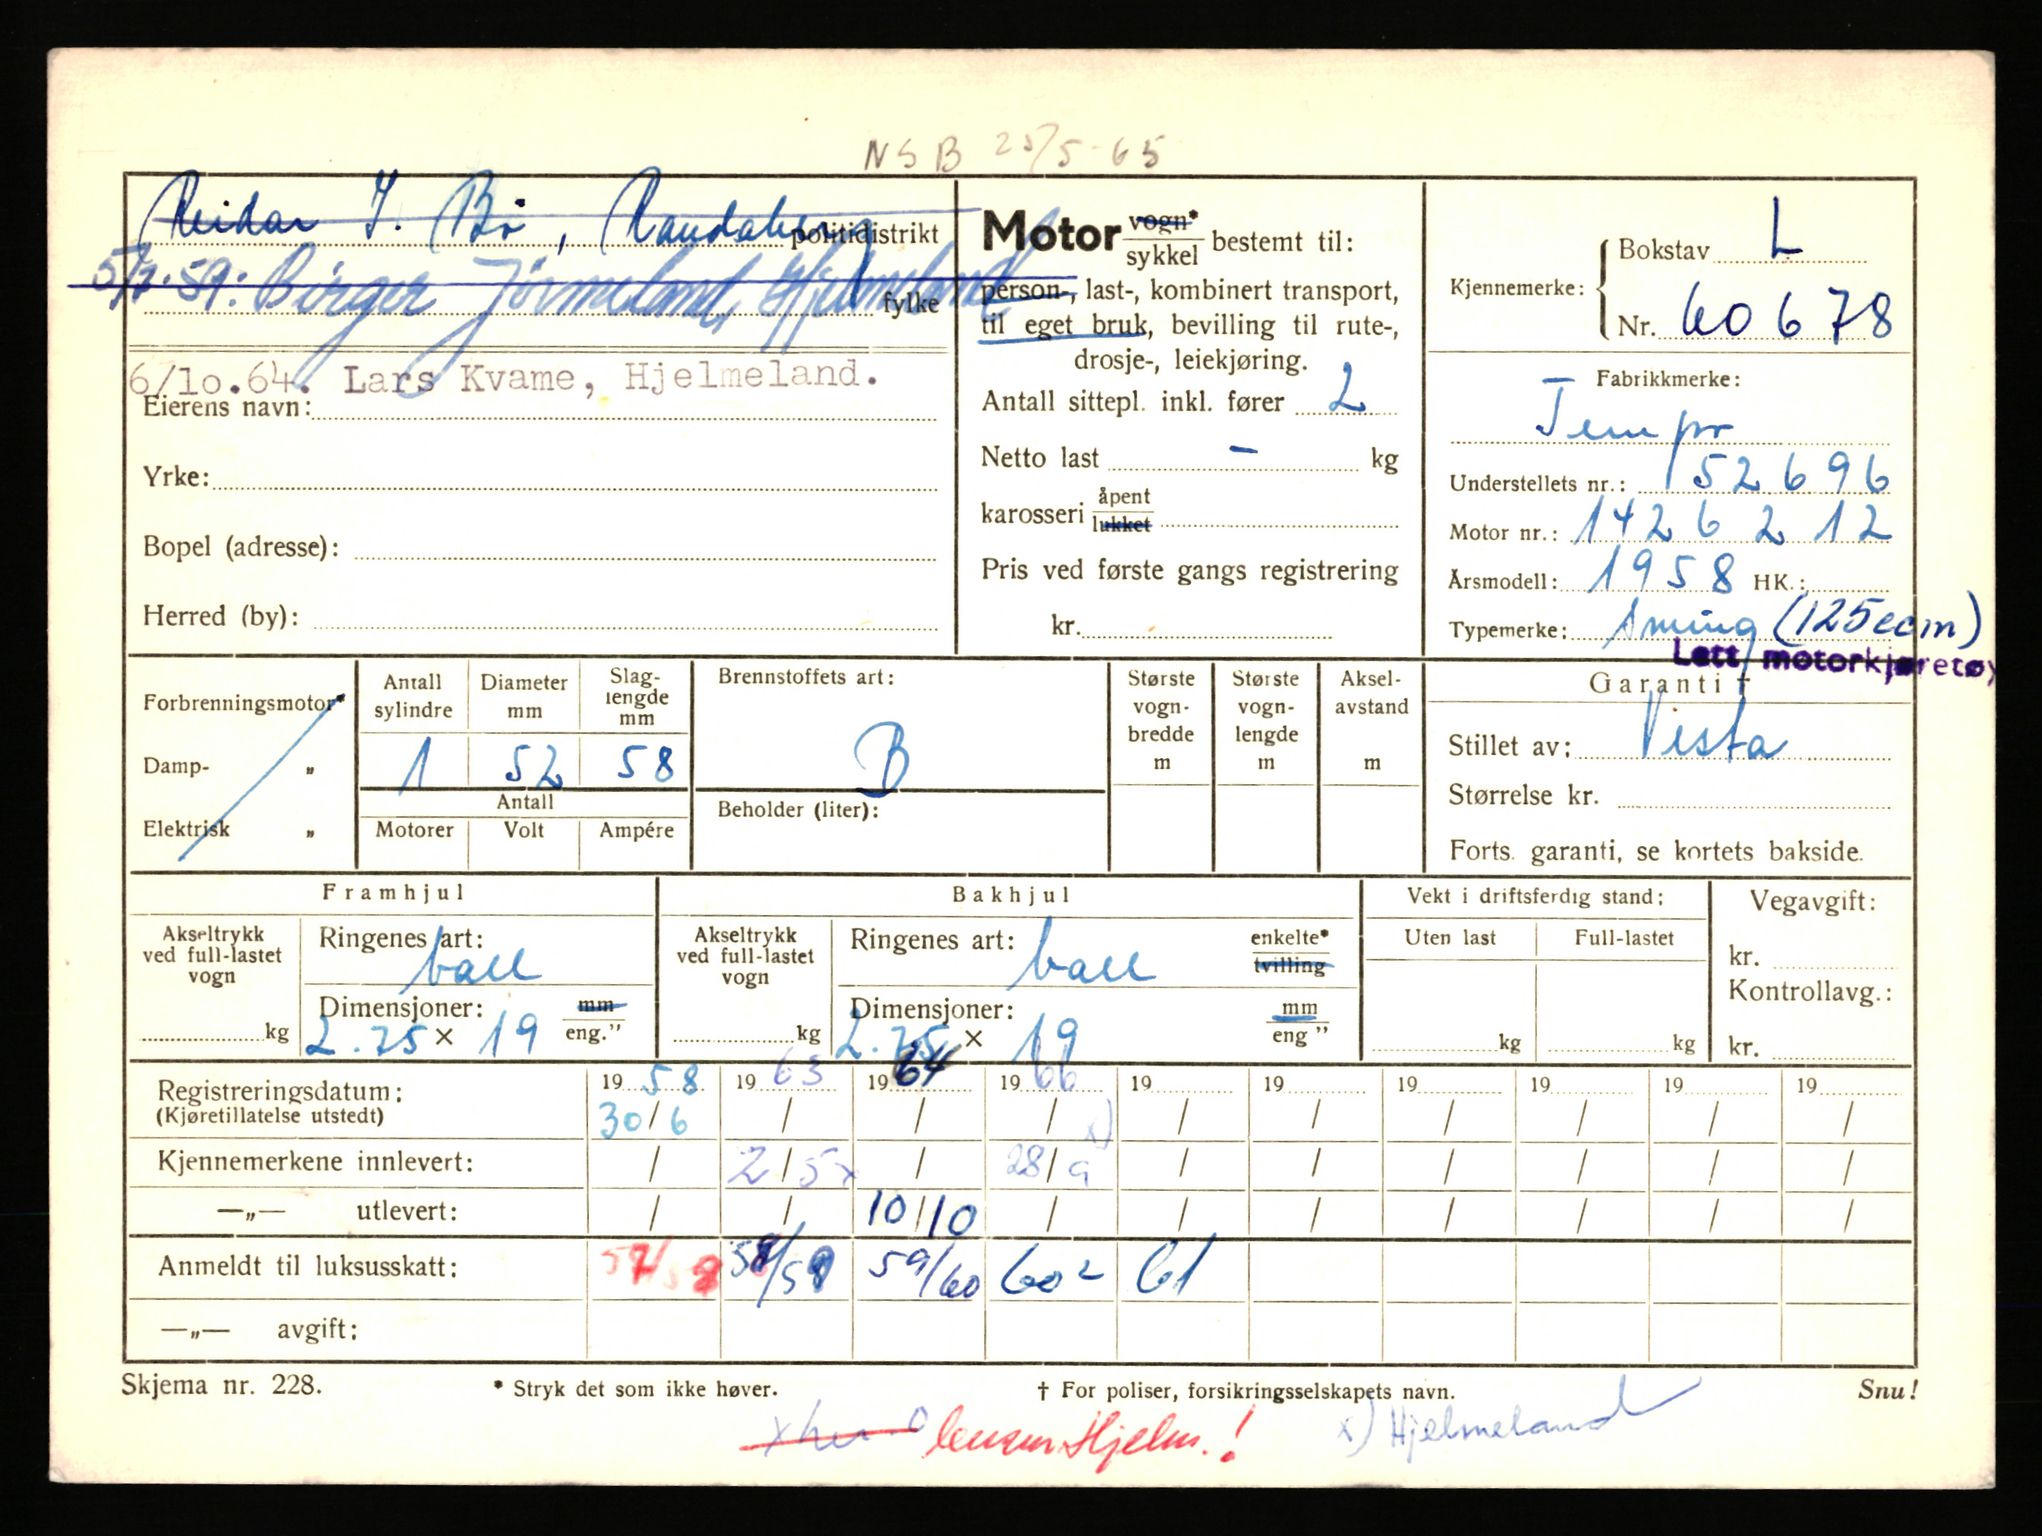 NSB 25/5-65
Reidar J. Bø, Randaberg politidistrikt
5/7-59: Birger Jørmeland, Hjelmeland fylke
6/10.64. Lars Kvame, Hjelmeland.
Eierens navn:
Yrke:
Bopel (adresse):
Herred (by):
Motor vogn*
sykkel bestemt til:
person-, last-, kombinert transport,
til eget bruk, bevilling til rute-,
drosje-, leiekjøring.
Antall sittepl. inkl. fører 2
Netto last - kg
karosseri åpent
lukket
Pris ved første gangs registrering
kr.
Kjennemerke: Bokstav L
Nr. 60678
Fabrikkmerke:
Tempo
Understellets nr.: 152696
Motor nr.: 1426212
Årsmodell: 1958 HK.:
Typemerke: (125ccm)
Lett motorkjøretøy
Forbrenningsmotor*
Damp- „
Elektrisk „
Antall sylindre
1
Diameter mm
52
Slaglengde mm
58
Antall
Motorer Volt Ampére
Brennstoffets art:
B
Beholder (liter):
Største vogn-bredde m
Største vogn-lengde m
Aksel-avstand m
Garanti †
Stillet av: Vesta
Størrelse kr.
Forts. garanti, se kortets bakside.
Framhjul
Akseltrykk ved full-lastet vogn
kg
Ringenes art:
ball
Dimensjoner: mm
2.75 × 19 eng."
Bakhjul
Akseltrykk ved full-lastet vogn
kg
Ringenes art: enkelte*
ball tvilling
Dimensjoner: mm
2.75 × 19 eng "
Vekt i driftsferdig stand:
Uten last Full-lastet
kg kg
Vegavgift:
kr.
Kontrollavg.:
kr.
Registreringsdatum: 1958 1963 1964 1966 19 19 19 19 19 19
(Kjøretillatelse utstedt) 30/6 / / / / / / / / /
Kjennemerkene innlevert: / 2/5x / 28/9 x) / / / / / /
—„— utlevert: / / 10/10 / / / / / / /
Anmeldt til luksusskatt: 57/58 58/59 59/60 60² 61
—„— avgift:
Skjema nr. 228. * Stryk det som ikke høver. † For poliser, forsikringsselskapets navn. Snu!
Hjelm.! x) Hjelmeland